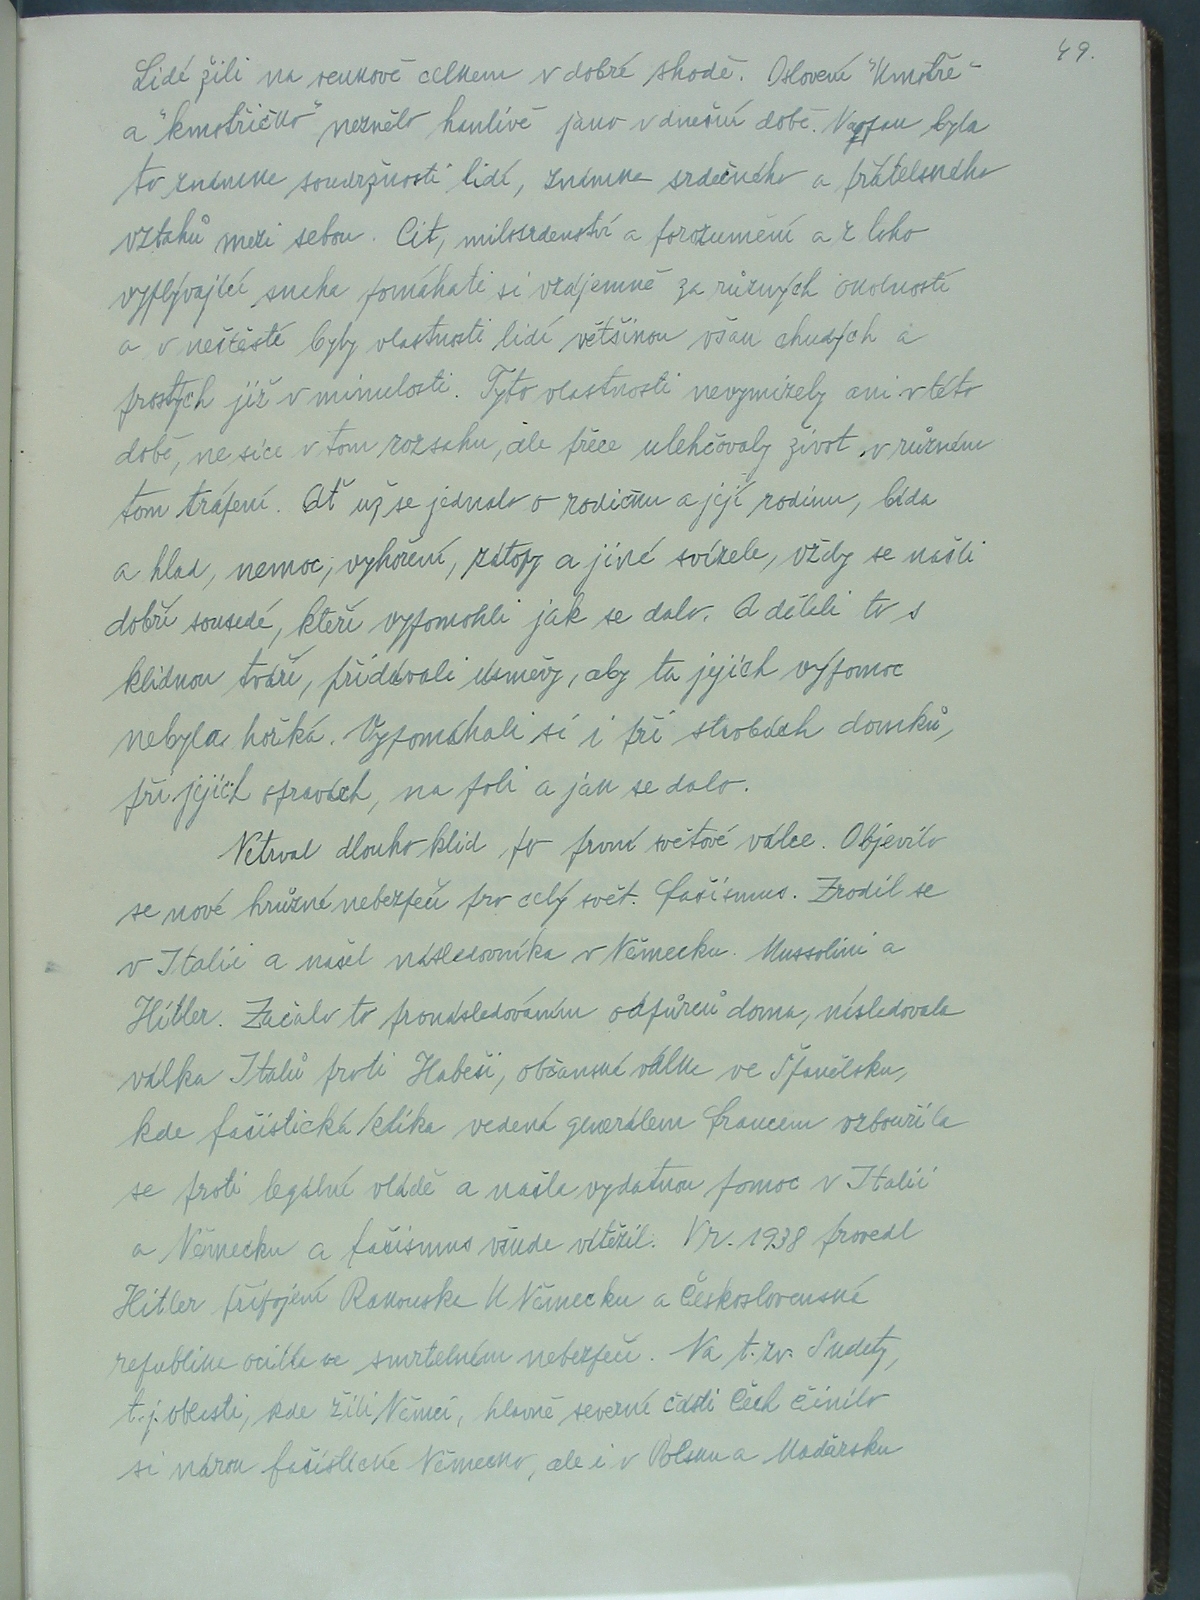 49.
Lidé žili na venkově celkem v dobré shodě. Oslovení "kmotře"
a "kmotřičko" neznělo hanlivě jako v dnešní době. Naopak byla
to známka soudržnosti lidí, známka srdečného a přátelského
vztahů mezi sebou. Cit, milosrdenství a porozumění a z toho
vyplývající snaha pomáhati si vzájemně za různých okolností
a v neštěstí byly vlastnosti lidí většinou však chudých a
prostých již v minulosti. Tyto vlastnosti nevymizely ani v této
době, ne sice v tom rozsahu, ale přece ulehčovaly život v různém
tom trápení. Ať už se jednalo o rodičku a její rodinu, bída
a hlad, nemoc, vyhoření, zátopy a jiné svízele, vždy se našli
dobří sousedé, kteří vypomohli jak se dalo. A dělali to s
klidnou tváří, přidávali úsměvy, aby ta jejich výpomoc
nebyla hořká. Vypomáhali si i při stavbách domků,
při jejich opravách, na poli a jak se dalo.
Netrval dlouho klid po první světové válce. Objevilo
se nové hrůzné nebezpečí pro celý svět. fašismus. Zrodil se
v Italii a našel následovníka v Německu. Mussolini a
Hitler. Začalo to pronásledováním odpůrců doma, následovala
válka Italů proti Habeši, občanská válka ve Španělsku,
kde fašistická klika vedená generálem francem vzbouřila
se proti legální vládě a našla vydatnou pomoc v Italii
a Německu a fašismus všude vítězil. V r. 1938 provedl
Hitler připojení Rakouska k Německu a Československá
republika ocitla se smrtelném nebezpečí. Na t. zv. Sudety,
t. j. oblasti, kde žili Němci, hlavně severní části Čech činilo
si nárok fašistické Německo, ale i v Polsku a Maďarsku